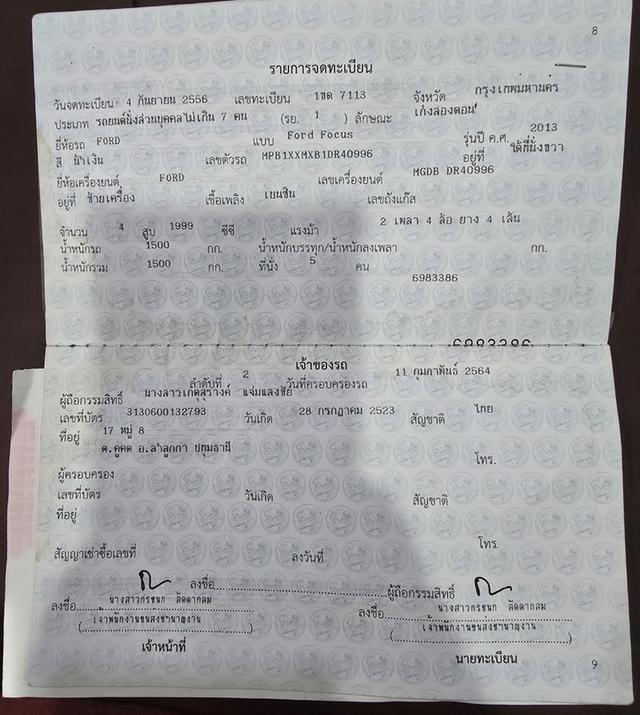 8
รายการจดทะเบียน
วันจดทะเบียน 4 กันยายน 2556 เลขทะเบียน 1ขด 7113 จังหวัด กรุงเทพมหานคร
ประเภท รถยนต์นั่งส่วนบุคคลไม่เกิน 7 คน (รย. 1 ) ลักษณะ เก๋งสองตอน
ยี่ห้อรถ FORD แบบ Ford Focus รุ่นปี ค.ศ. 2013
สี น้ำเงิน เลขตัวรถ MPB1XXMXB1DR40996 อยู่ที่ ใต้ที่นั่งขวา
ยี่ห้อเครื่องยนต์ FORD เลขเครื่องยนต์ MGDB DR40996
อยู่ที่ ซ้ายเครื่อง เชื้อเพลิง เบนซิน เลขถังแก๊ส
จำนวน 4 สูบ 1999 ซีซี แรงม้า 2 เพลา 4 ล้อ ยาง 4 เส้น
น้ำหนักรถ 1500 กก. น้ำหนักบรรทุก/น้ำหนักลงเพลา กก.
น้ำหนักรวม 1500 กก. ที่นั่ง 5 คน
6983386
6983386
เจ้าของรถ
ลำดับที่ 2 วันที่ครอบครองรถ 11 กุมภาพันธ์ 2564
ผู้ถือกรรมสิทธิ์ นางสาวเกตุสุรางค์ แจ่มแสงชัย
เลขที่บัตร 3130600132793 วันเกิด 28 กรกฎาคม 2523 สัญชาติ ไทย
ที่อยู่ 17 หมู่ 8
ต.คูคต อ.ลำลูกกา ปทุมธานี
โทร.
ผู้ครอบครอง
เลขที่บัตร วันเกิด สัญชาติ
ที่อยู่
โทร.
สัญญาเช่าซื้อเลขที่ ลงวันที่
ลงชื่อ ผู้ถือกรรมสิทธิ์
ลงชื่อ นางสาวกรชนก ลัดดากลม ลงชื่อ นางสาวกรชนก ลัดดากลม
(เจ้าพนักงานขนส่งชำนาญงาน) (เจ้าพนักงานขนส่งชำนาญงาน)
เจ้าหน้าที่ นายทะเบียน
9